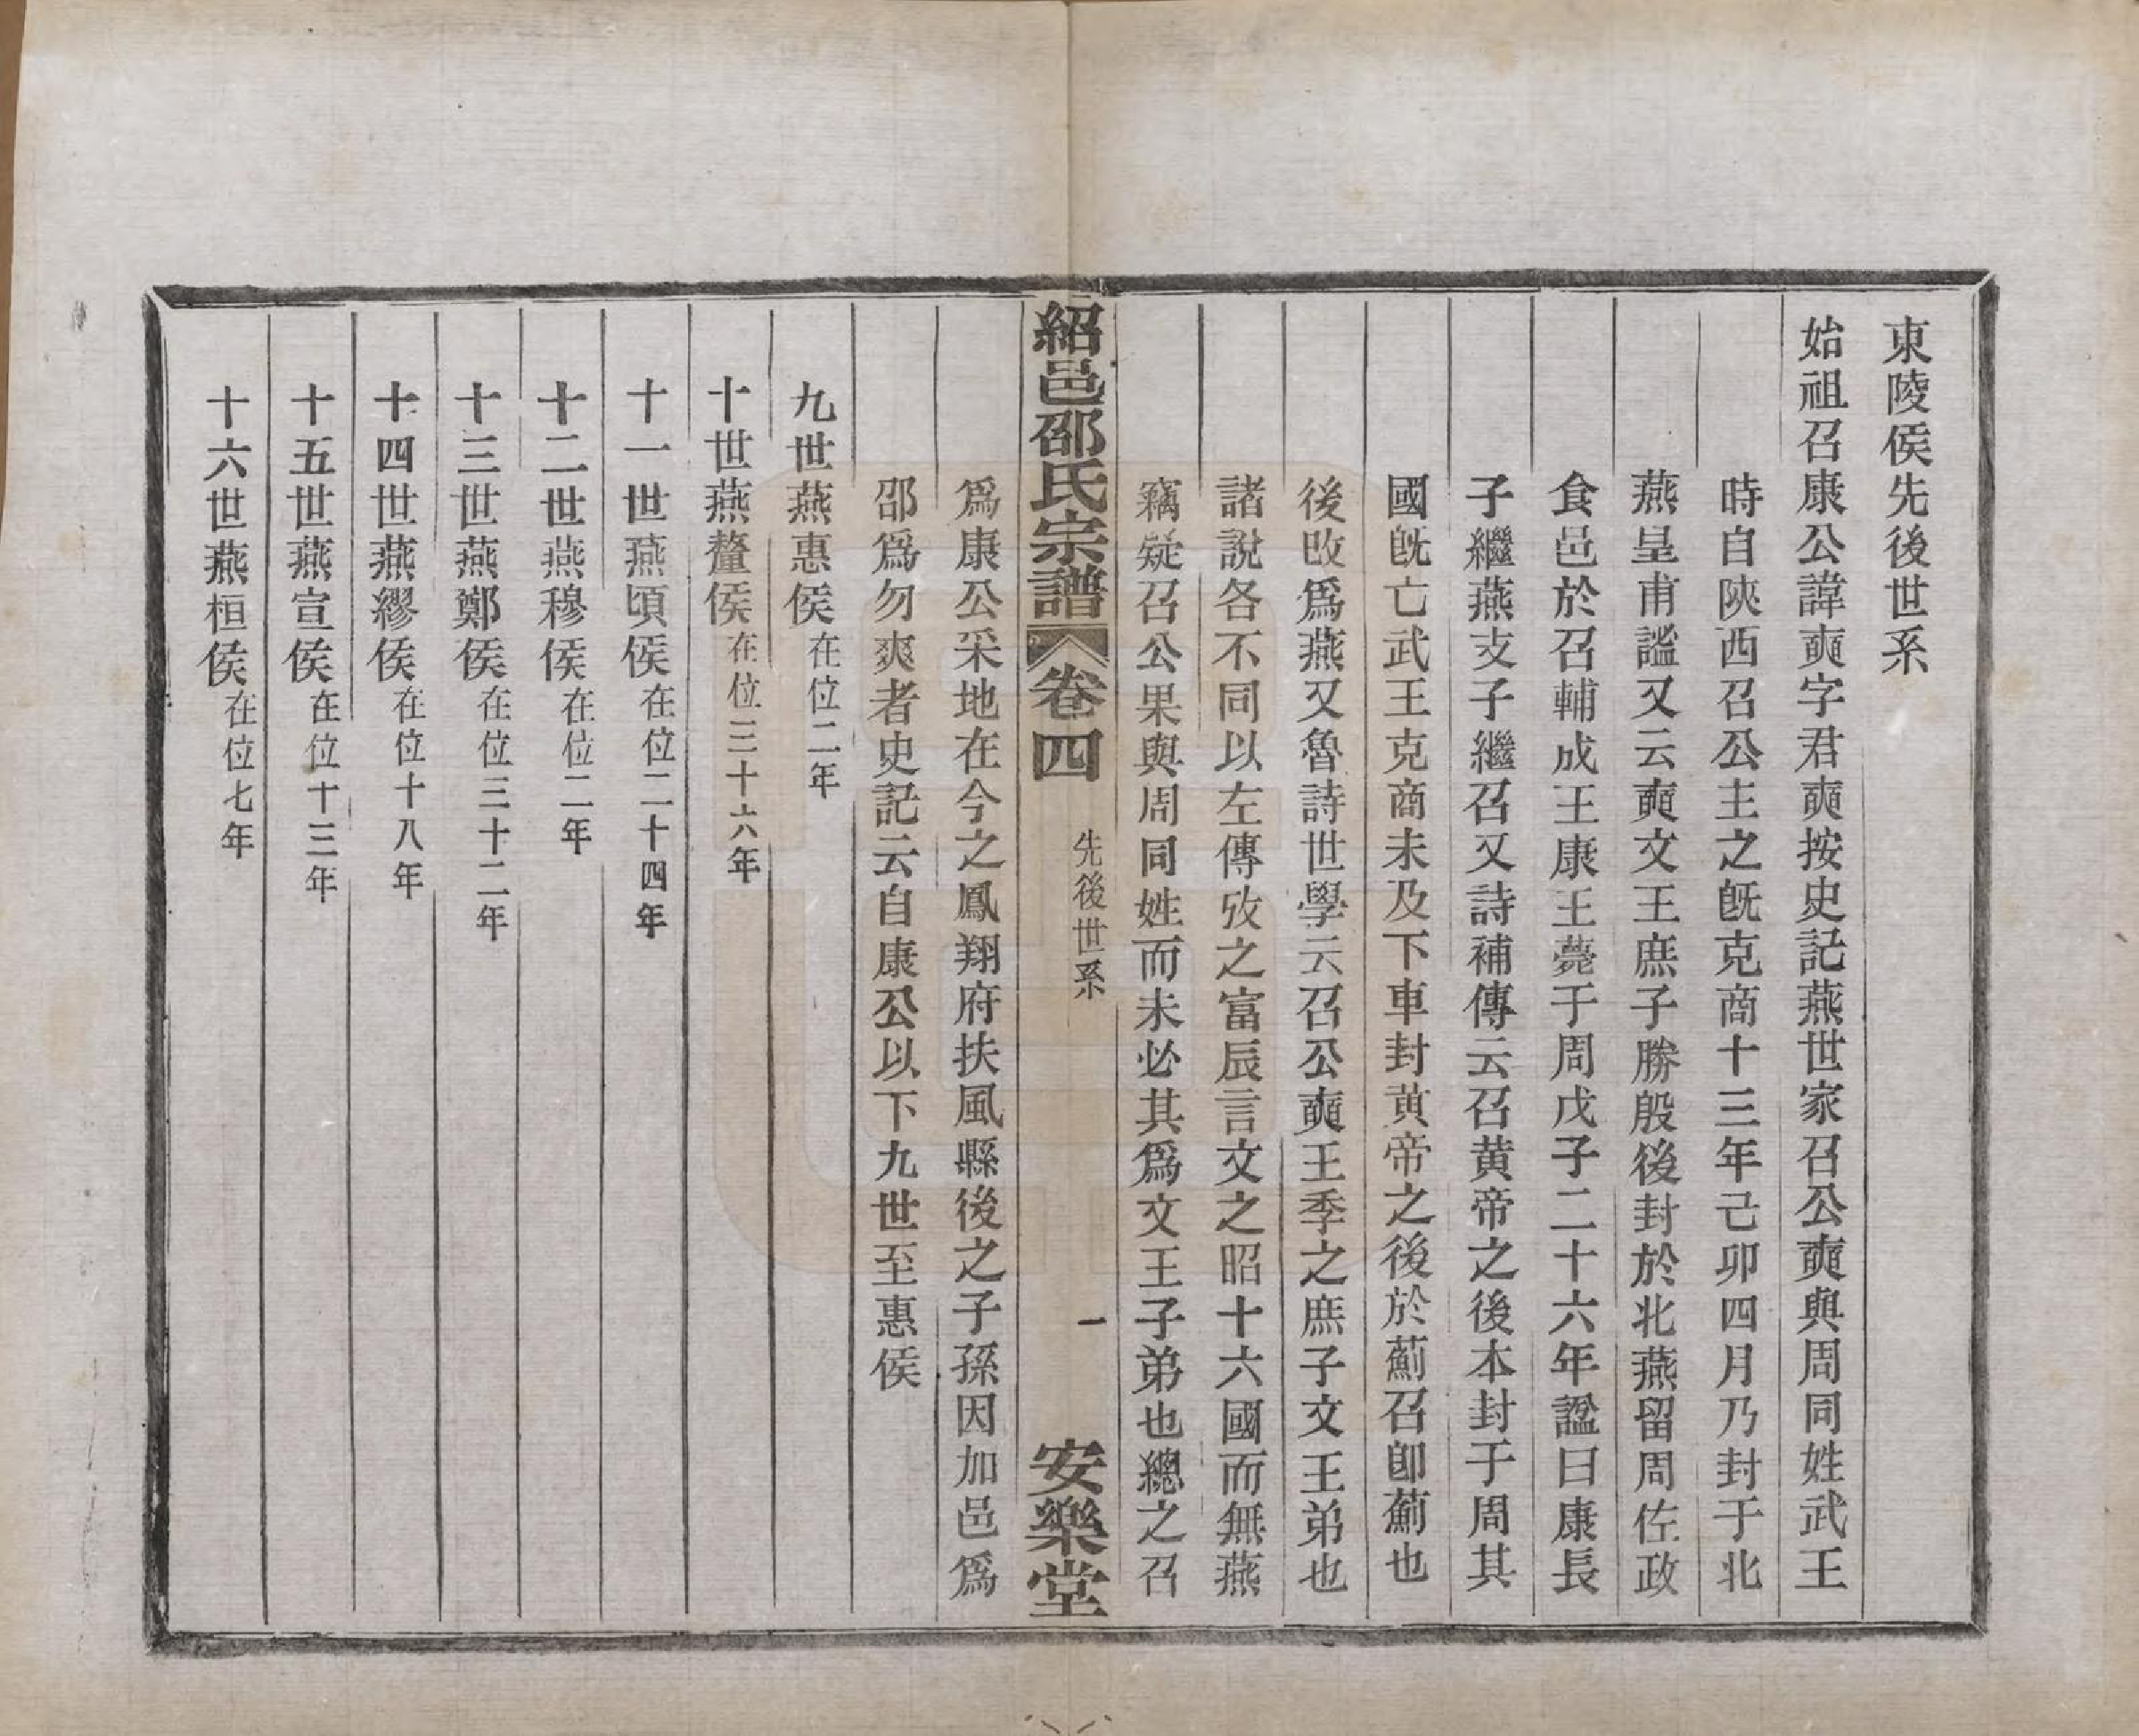 東陵侯先後世系
始祖召康公諱奭字君奭按史記燕世家召公奭與周同姓武王
時自陝西召公主之旣克商十三年己卯四月乃封于北
燕呈甫謚又云奭文王庶子勝殷後封於北燕留周佐政
食邑於召輔成王康王薨于周戊子二十六年謚曰康長
子繼燕支子繼召又詩補傳云召黄帝之後本封于周其
國旣亡武王克商未及下車封黄帝之後於薊召卽薊也
後改爲燕又魯詩世學云召公奭王季之庶子文王弟也
諸說各不同以左傳攷之富辰言文之昭十六國而無燕
竊疑召公果與周同姓而未必其爲文王子弟也總之召
紹邑邵氏宗譜 卷四 先後世系 一 安樂堂
爲康公采地在今之鳳翔府扶風縣後之子孫因加邑爲
邵爲勿爽者史記云自康公以下九世至惠侯
九世燕惠侯在位二年
十世燕釐侯在位三十六年
十一世燕頃侯在位二十四年
十二世燕穆侯在位二年
十三世燕鄭侯在位三十二年
十四世燕繆侯在位十八年
十五世燕宣侯在位十三年
十六世燕桓侯在位七年